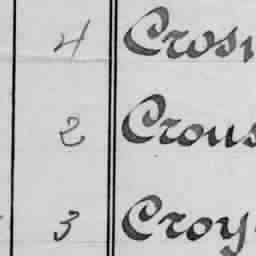 4 Crosi
2 Crous
3 Croy